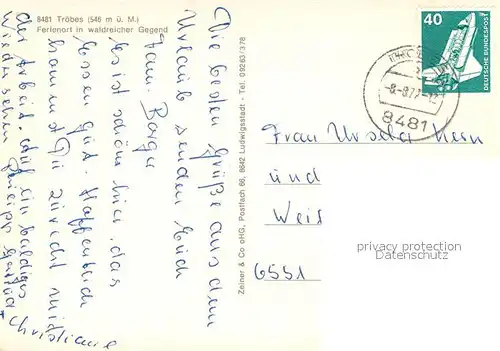 8481 Tröbes (546 m ü. M.)
Ferienort in waldreicher Gegend
Die besten Grüße aus dem
Urlaub senden Euch
Fam. Berger
Es ist schön hier, das
Essen gut. Hoffentlich
kommst Du zurecht mit
der Arbeit. Auf ein baldiges
Wiedersehen Philipp
Christiane
Zeiner & Co oHG, Postfach 66, 8642 Ludwigsstadt - Tel. 09263/378
40
DEUTSCHE BUNDESPOST
8481
Frau Ursela Kern
und
Weis
6551
privacy protection
Delcampe.net